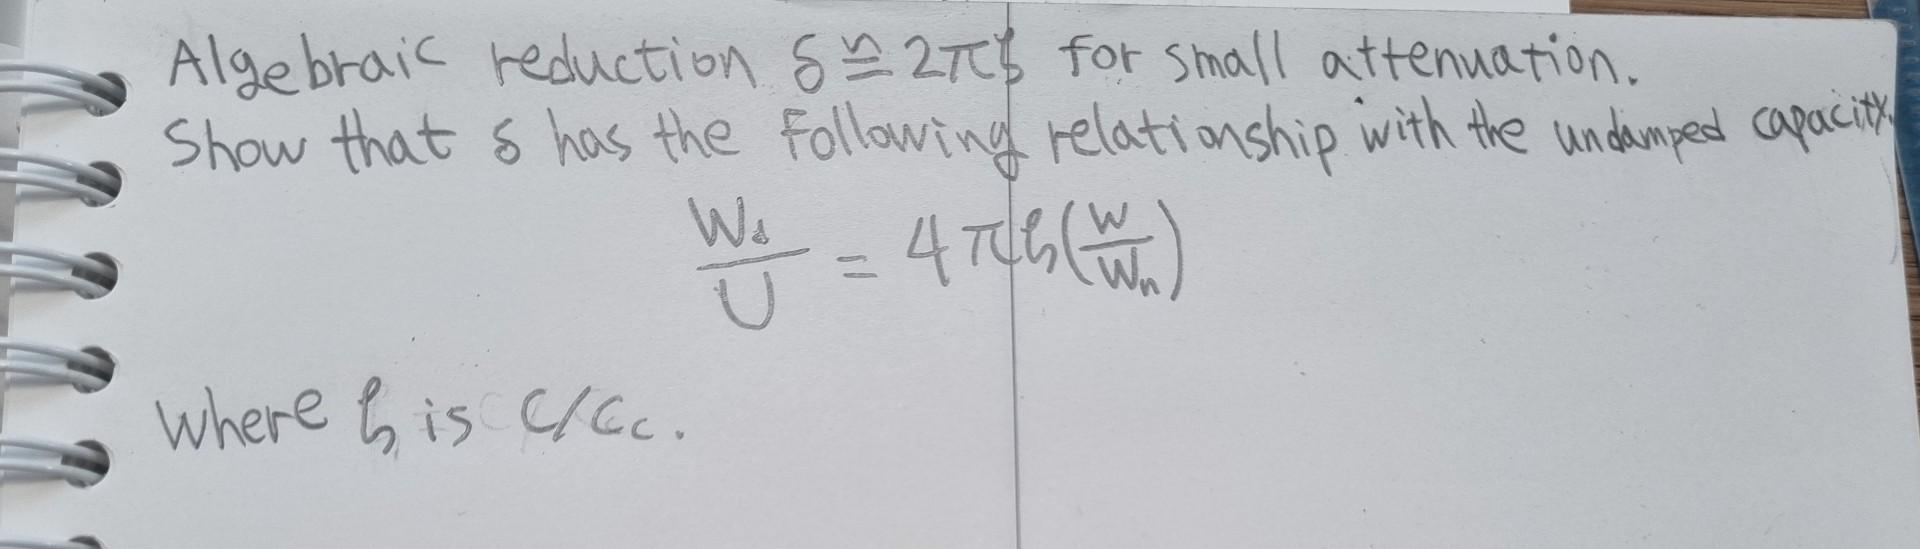 Algebraic reduction δ ≅ 2πζ for small attenuation.
Show that δ has the following relationship with the undamped capacity.
W_d/U = 4πζ(W/W_n)
Where ζ is C/C_c.